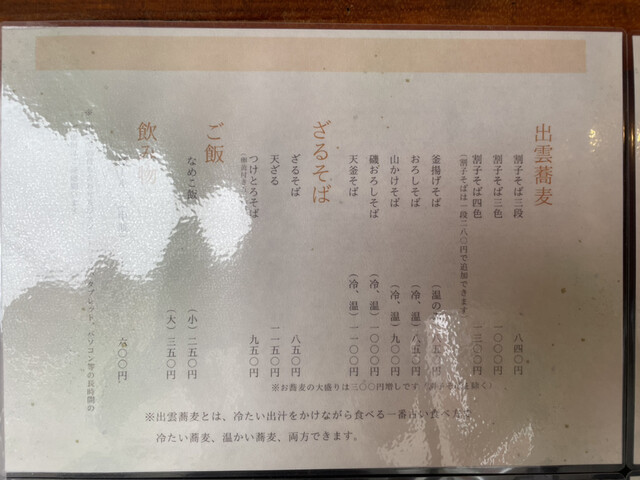 出雲蕎麦
割子そば三段 八四〇円
割子そば三色 一〇〇〇円
割子そば四色 一三〇〇円
(割子そばは一段二八〇円で追加できます)
釜揚げそば (温の 八五〇円
おろしそば (冷、温) 八五〇円
山かけそば (冷、温) 九〇〇円
磯おろしそば (冷、温) 一〇〇〇円
天釜そば (冷、温) 一一〇〇円
ざるそば
ざるそば 八五〇円
天ざる 一一五〇円
つけとろそば 九五〇円
ご飯
なめこ飯 (小) 二五〇円
(大) 三五〇円
飲み物
六〇〇円
タブレット、パソコン等の長時間の
※お蕎麦の大盛りは三〇〇円増しです
※出雲蕎麦とは、冷たい出汁をかけながら食べる一番古い食べ方で
冷たい蕎麦、温かい蕎麦、両方できます。